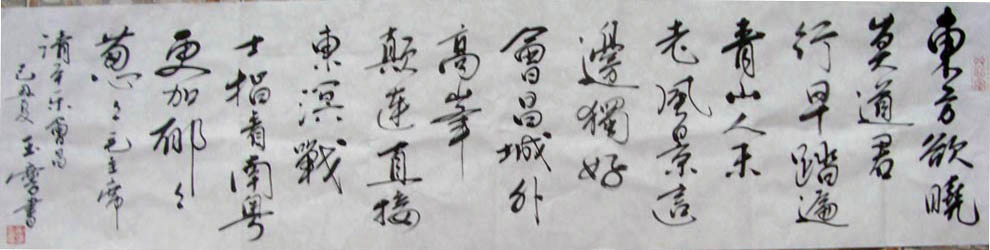 東方欲曉
莫道君
行早踏遍
青山人未
老風景這
邊獨好
會昌城外
高峯
顛連直接
東溟戰
士指看南粵
更加郁々
葱々毛主席
清平乐會昌
己丑夏玉書